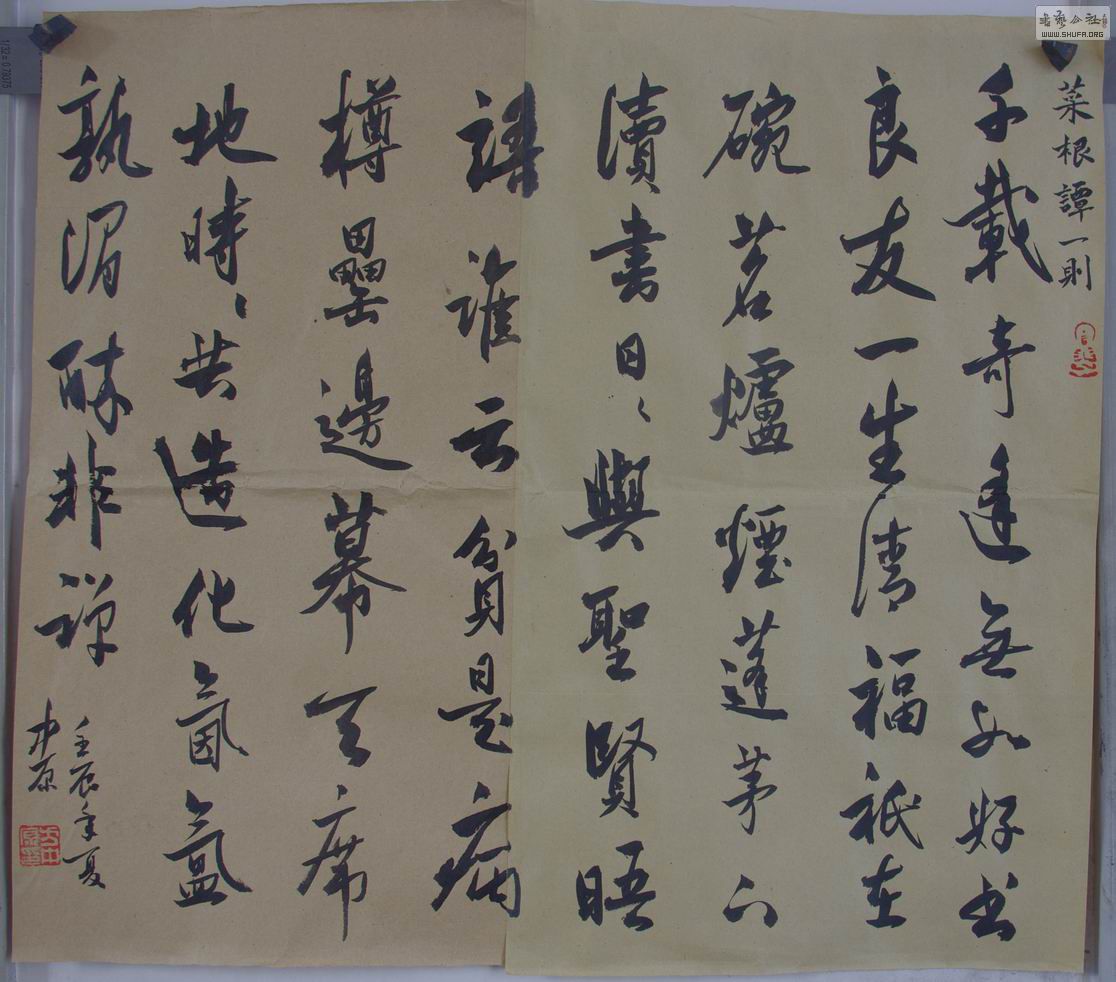 菜根譚一則
千載奇逢無如好书
良友一生清福祇在
碗茗爐煙蓬茅下
讀書日日與聖賢晤
語誰云貧是病
樽罍邊幕天席
地時時共造化氤氲
孰謂酔非禅
壬辰年夏
中原
書藝公社
WWW.SHUFA.ORG
1/32=0.79375